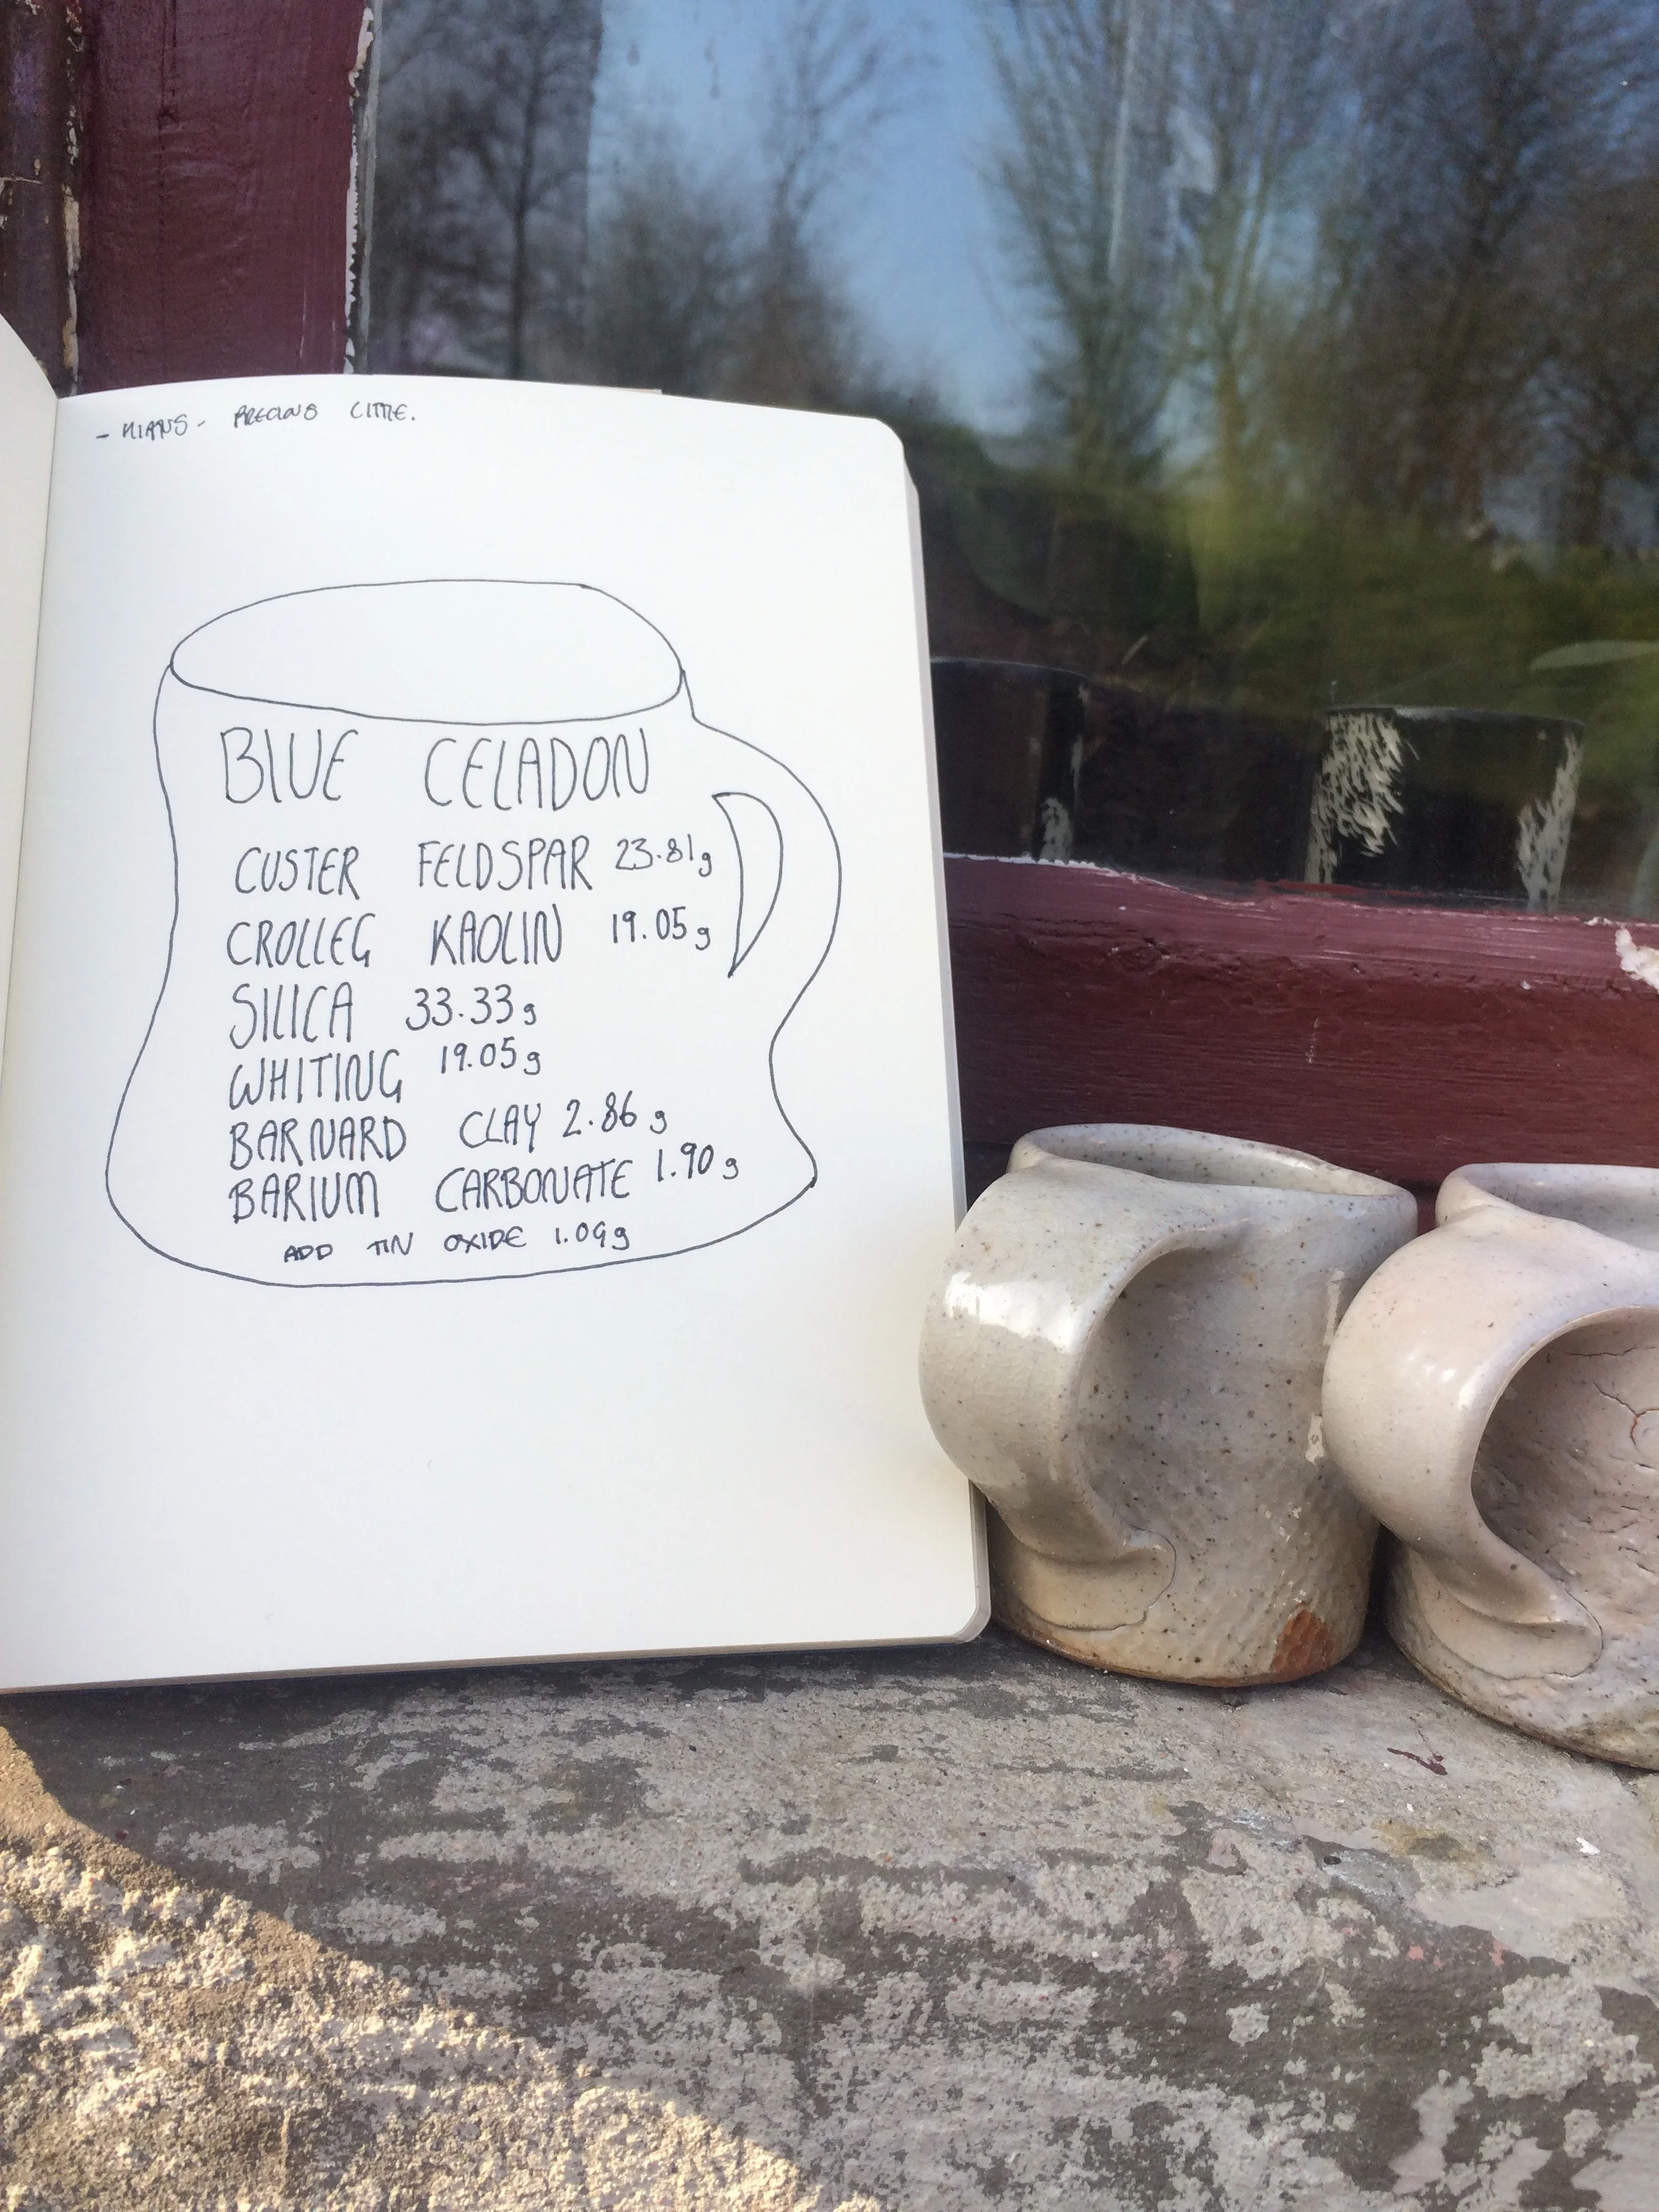 BLUE CELADON
CUSTER FELDSPAR 23.81g
CROLLEG KAOLIN 19.05g
SILICA 33.33g
WHITING 19.05g
BARNARD CLAY 2.86g
BARIUM CARBONATE 1.90g
ADD TIN OXIDE 1.09g